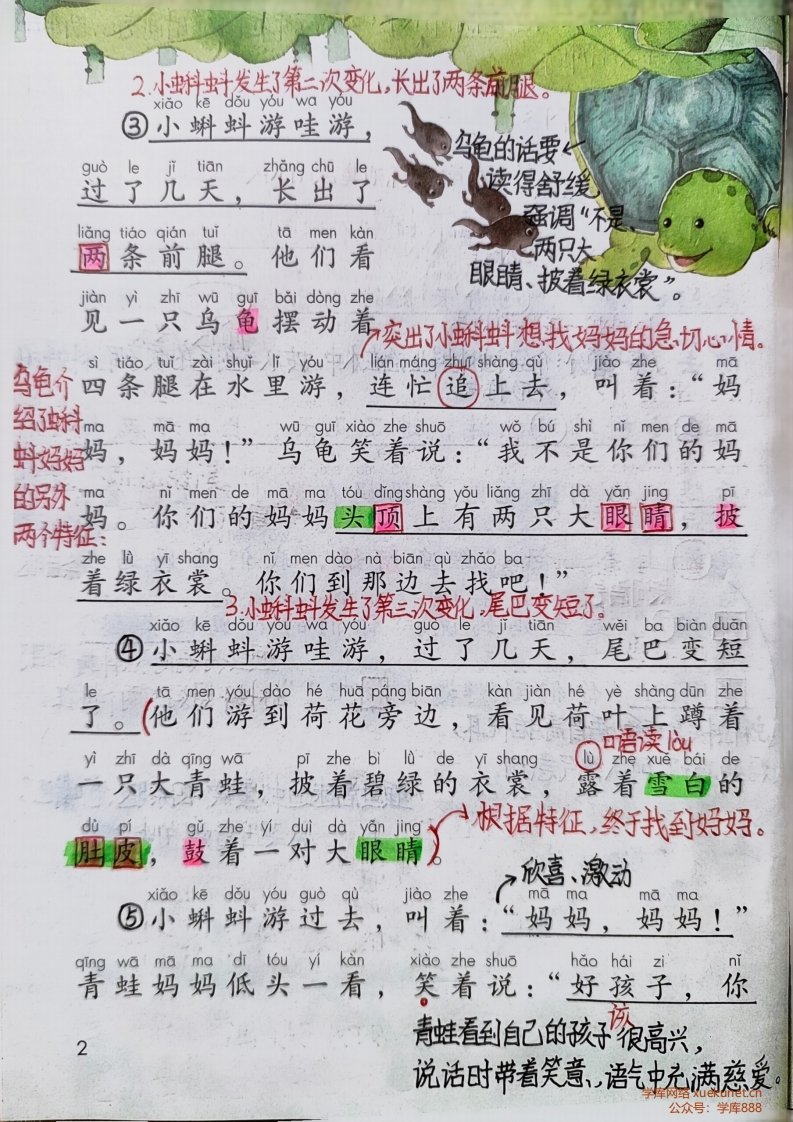 2.小蝌蚪发生了第二次变化,长出了两条前腿。
xiǎo kē dǒu yóu wa yóu
③小蝌蚪游哇游，
乌龟的话要
读得舒缓,
强调“不是、
两只大
眼睛、披着绿衣裳”。
guò le jǐ tiān zhǎng chū le
过了几天，长出了
liǎng tiáo qián tuǐ tā men kàn
两条前腿。他们看
jiàn yì zhī wū guī bǎi dòng zhe
见一只乌龟摆动着
突出了小蝌蚪想找妈妈的急切心情。
sì tiáo tuǐ zài shuǐ lǐ yóu lián máng zhuī shàng qù jiào zhe mā
四条腿在水里游，连忙追上去，叫着：“妈
乌龟介
绍了小蝌
蚪妈妈
的另外
两个特征:
ma mā ma wū guī xiào zhe shuō wǒ bú shì nǐ men de mā
妈，妈妈！”乌龟笑着说：“我不是你们的妈
ma nǐ men de mā ma tóu dǐng shàng yǒu liǎng zhī dà yǎn jing pī
妈。你们的妈妈头顶上有两只大眼睛，披
zhe lǜ yī shang nǐ men dào nà biān qù zhǎo ba
着绿衣裳。你们到那边去找吧！”
3.小蝌蚪发生了第三次变化,尾巴变短了。
xiǎo kē dǒu yóu wa yóu guò le jǐ tiān wěi ba biàn duǎn
④小蝌蚪游哇游，过了几天，尾巴变短
le tā men yóu dào hé huā páng biān kàn jiàn hé yè shàng dūn zhe
了。(他们游到荷花旁边，看见荷叶上蹲着
口语读lòu
yì zhī dà qīng wā pī zhe bì lǜ de yī shang lù zhe xuě bái de
一只大青蛙，披着碧绿的衣裳，露着雪白的
dù pí gǔ zhe yí duì dà yǎn jing
肚皮，鼓着一对大眼睛。)
根据特征,终于找到妈妈。
欣喜、激动
xiǎo kē dǒu yóu guò qù jiào zhe mā ma mā ma
⑤小蝌蚪游过去，叫着：“妈妈，妈妈！”
qīng wā mā ma dī tóu yí kàn xiào zhe shuō hǎo hái zi nǐ
青蛙妈妈低头一看，笑着说：“好孩子，你
该
青蛙看到自己的孩子很高兴,
说话时带着笑意,语气中充满慈爱。
2
学库网络 xuekunet.cn
公众号：学库888